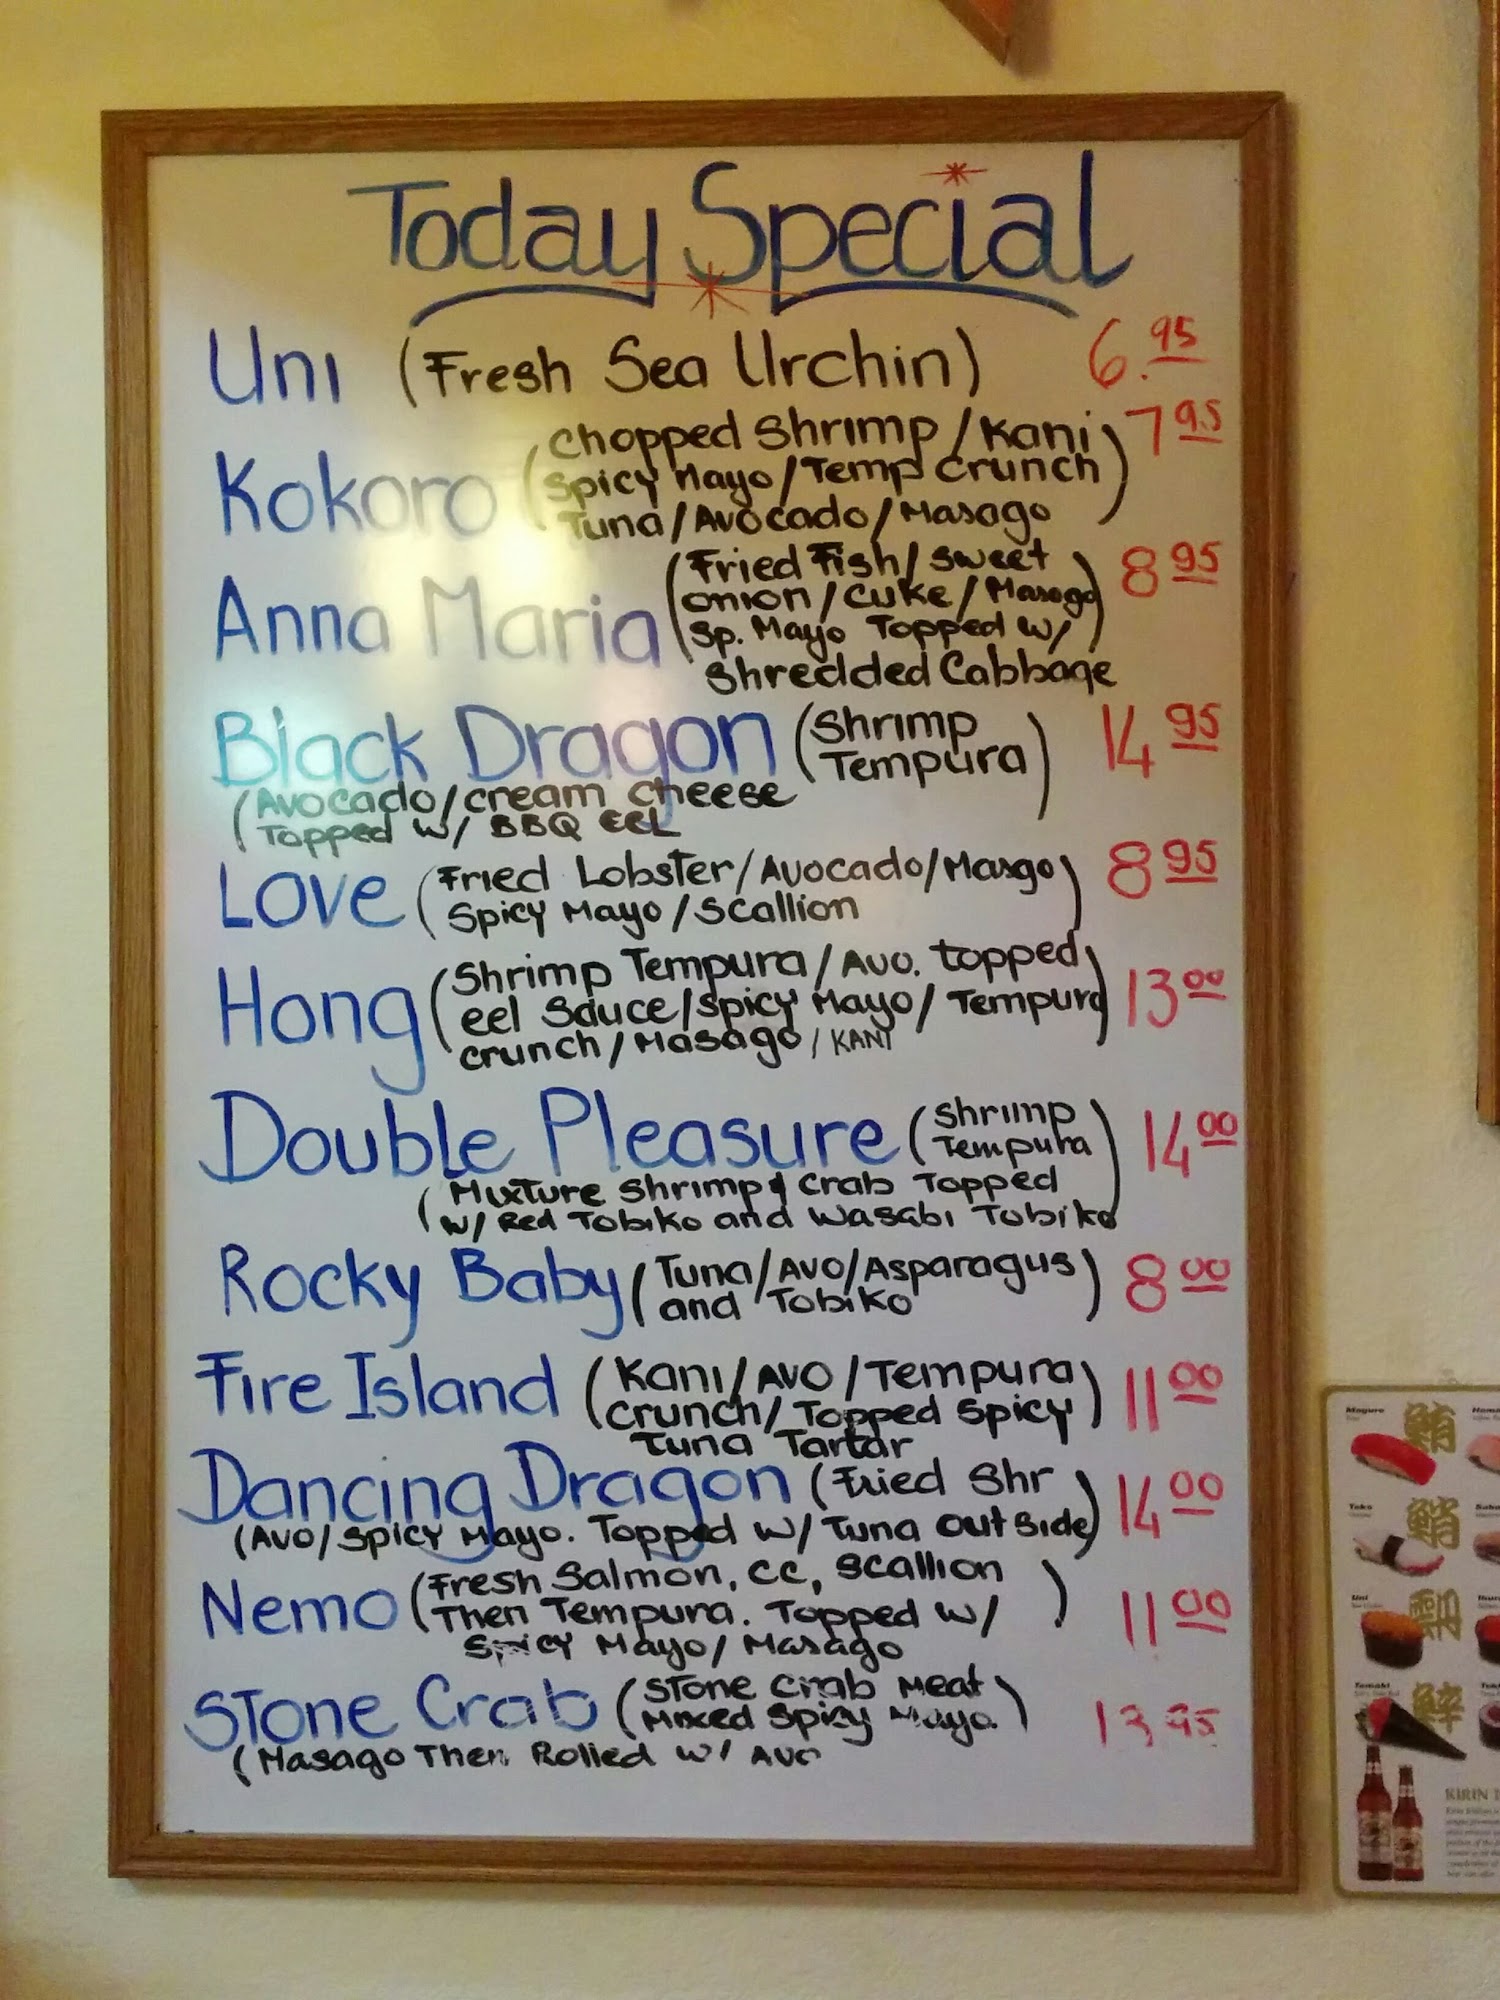 Today Special
Uni (Fresh Sea Urchin) 6.95
Kokoro (Chopped Shrimp/Kani 7 95
Spicy Mayo/Temp Crunch)
Tuna/Avocado/Masago
Anna Maria (Fried Fish/Sweet 8 95
onion/Cuke/Masago)
Sp. Mayo Topped w/
Shredded Cabbage
Black Dragon (Shrimp 14 95
Tempura)
(Avocado/cream cheese
Topped w/ BBQ EEL
Love (Fried Lobster/Avocado/Masgo) 8 95
Spicy Mayo/Scallion
Hong (Shrimp Tempura/Avo. topped 13 00
eel Sauce/Spicy Mayo/Tempura)
crunch/Masago/KANI
Double Pleasure (Shrimp 14 00
Tempura)
(Mixture Shrimp & Crab Topped
w/ Red Tobiko and Wasabi Tobiko
Rocky Baby (Tuna/Avo/Asparagus) 8 00
and Tobiko
Fire Island (Kani/Avo/Tempura 11 00
Crunch/Topped Spicy)
Tuna Tartar
Dancing Dragon (Fried Shr 14 00
(Avo/Spicy Mayo. Topped w/ Tuna Out Side)
Nemo (Fresh Salmon, CC, Scallion 11 00
Then Tempura. Topped w/ )
Spicy Mayo/Masago
Stone Crab (Stone Crab Meat 13.95
Mixed Spicy Mayo.)
(Masago Then Rolled w/ Avo
Maguro
Tako
Uni
Temaki
KIRIN